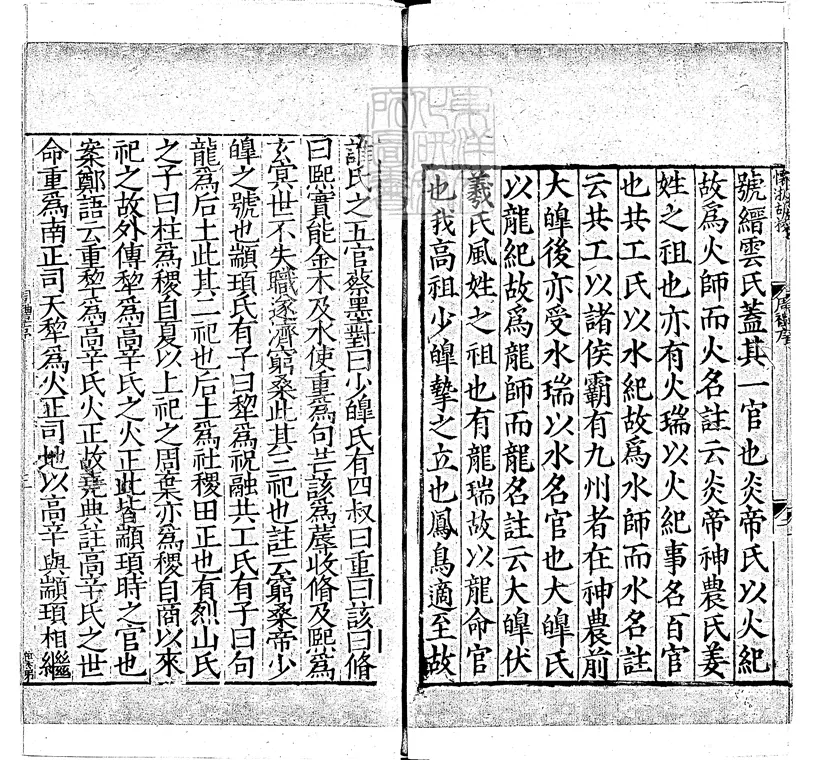 號縉雲氏蓋其一官也炎帝氏以火紀
故為火師而火名註云炎帝神農氏姜
姓之祖也亦有火瑞以火紀事名百官
也共工氏以水紀故為水師而水名註
云共工以諸侯霸有九州者在神農前
大皥後亦受水瑞以水名官也大皥氏
以龍紀故為龍師而龍名註云大皥伏
羲氏風姓之祖也有龍瑞故以龍命官
也我高祖少皥摯之立也鳳鳥適至故
氏之五官蔡墨對曰少皥氏有四叔曰重曰該曰脩
曰熙實能金木及水使重爲句芒該爲蓐收脩及熙爲
玄冥世不失職遂濟窮桑此其三祀也註云窮桑帝少
皥之號也顓頊氏有子曰犂爲祝融共工氏有子曰句
龍爲后土此其二祀也后土爲社稷田正也有烈山氏
之子曰柱爲稷自夏以上祀之周棄亦爲稷自商以來
祀之故外傳犂爲高辛氏之火正此皆顓頊時之官也
案鄭語云重黎爲高辛氏火正故堯典註高辛氏之世
命重爲南正司天犂爲火正司地以高辛與顓頊相繼